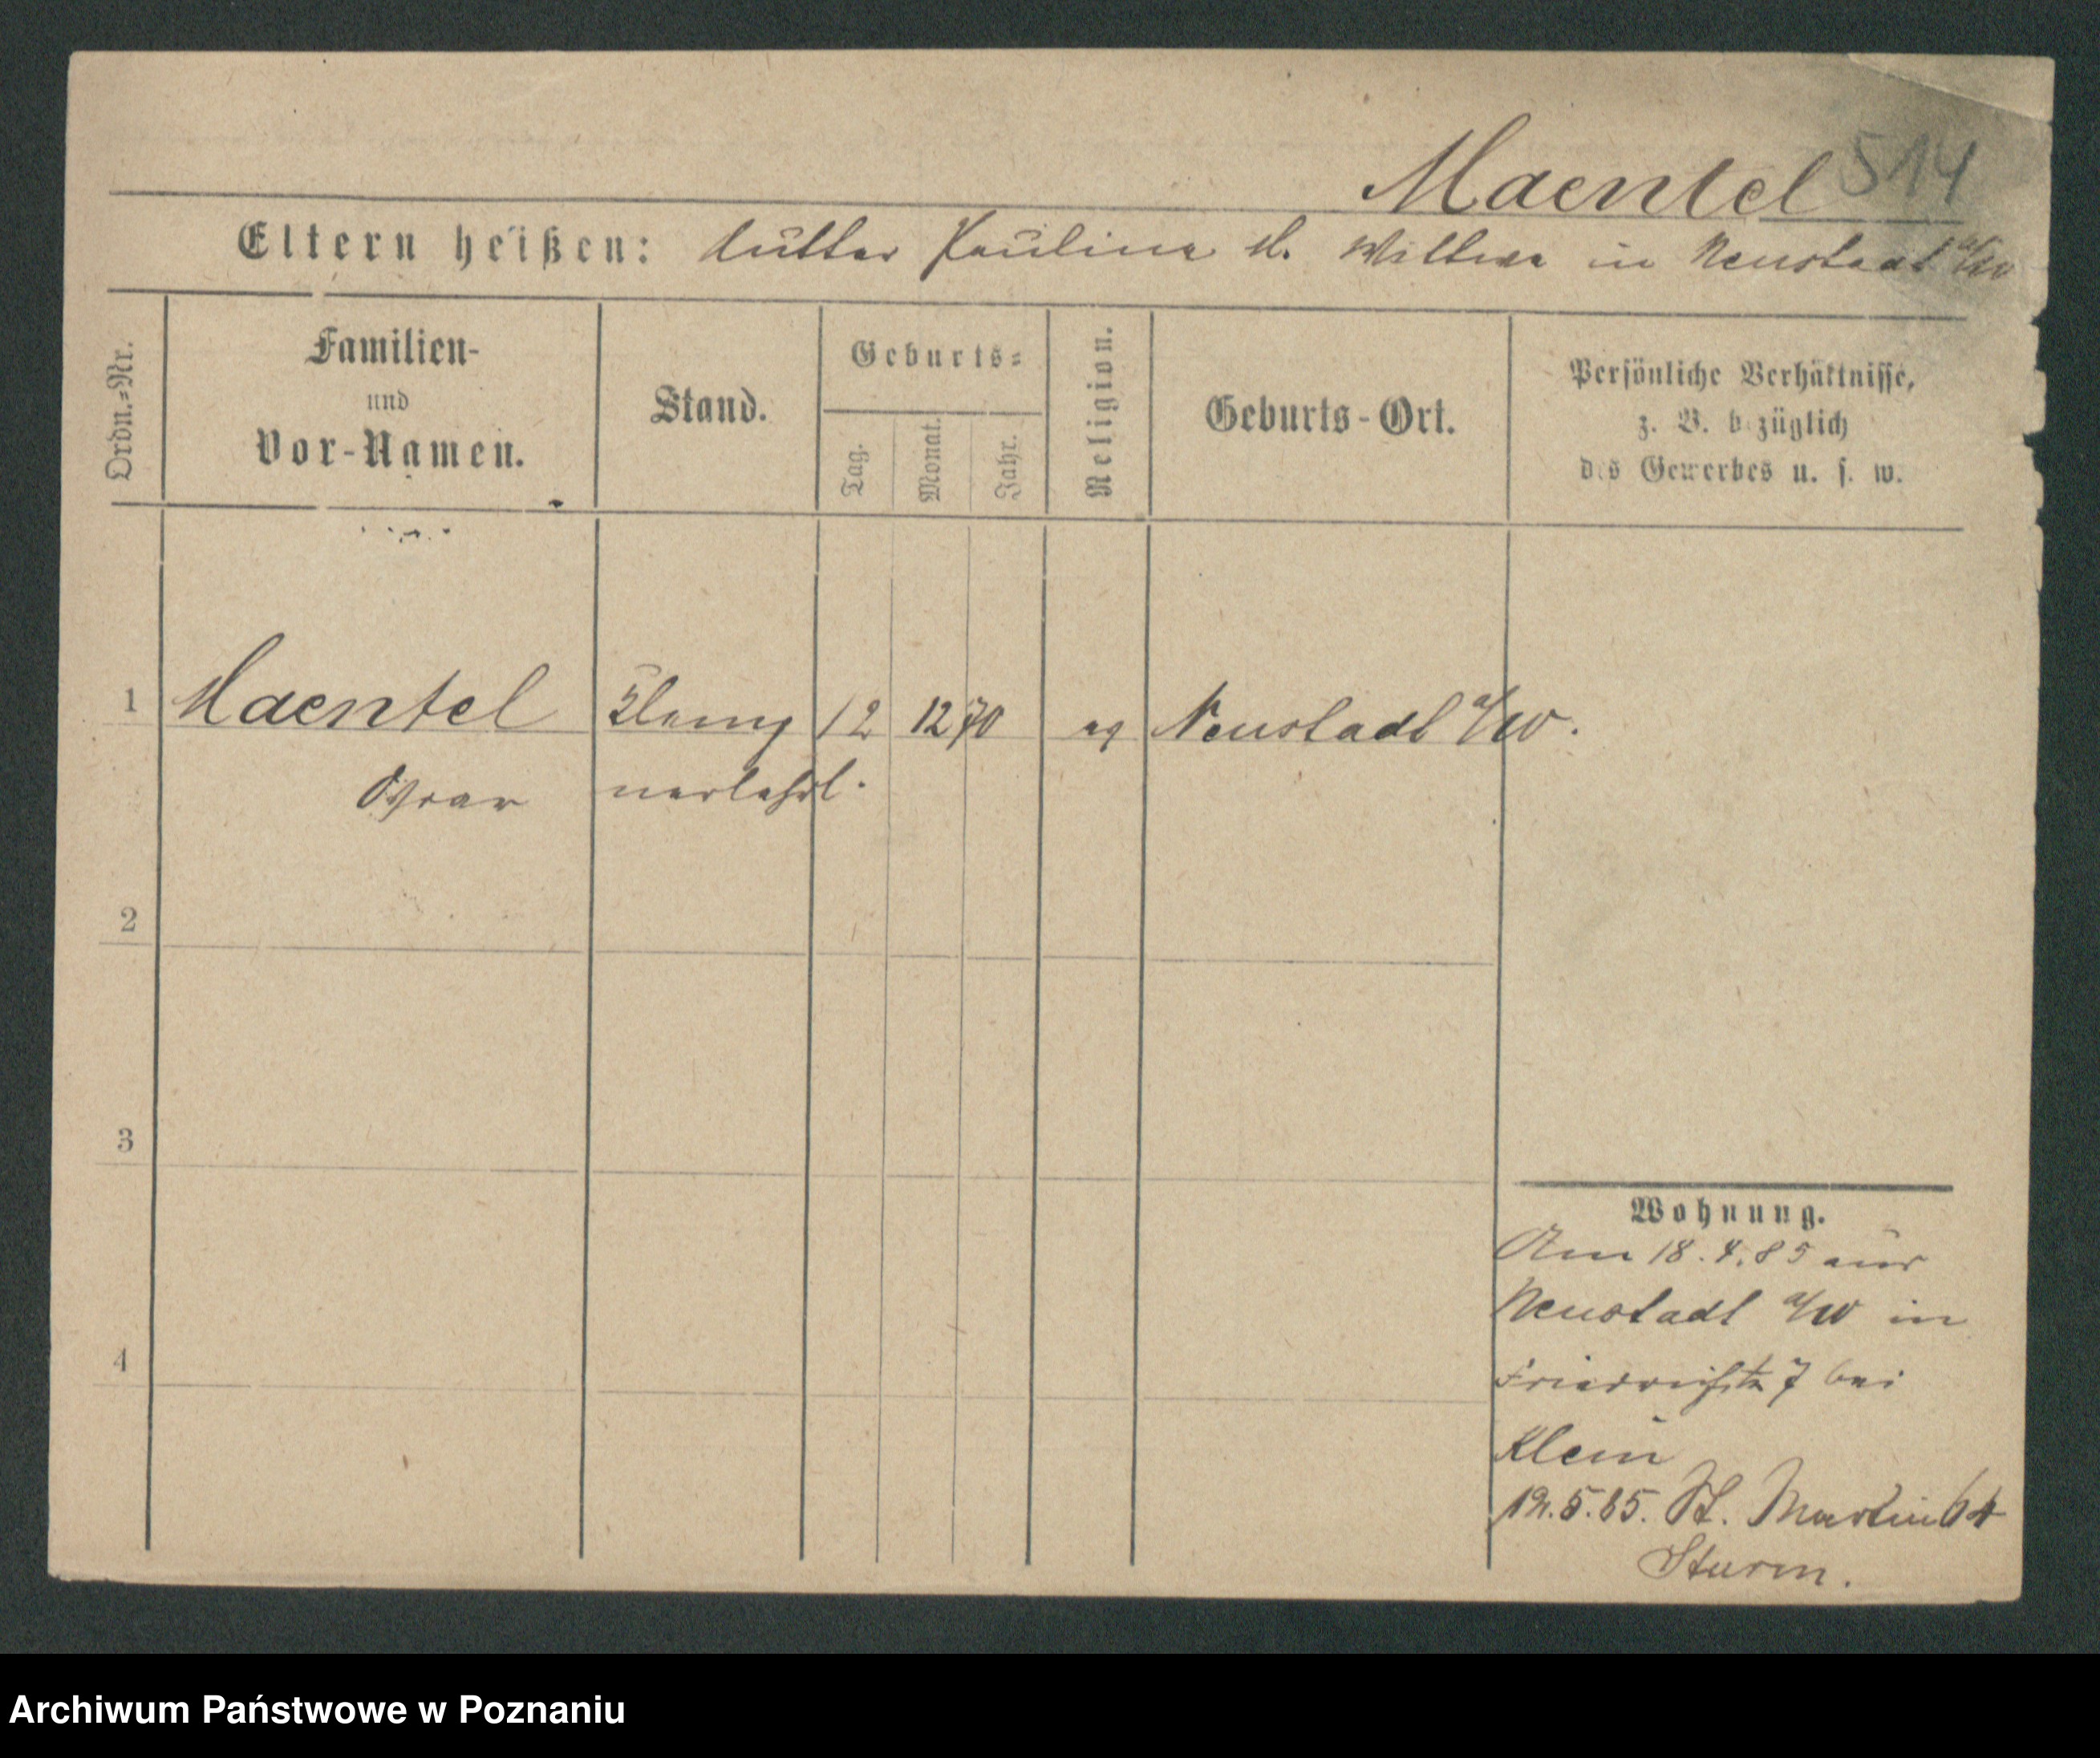 Maentel 514
Eltern heißen: Mutter Paulina M. Wittwe in Neustadt a/W
Ordn.-Nr.
Familien-
und
Vor-Namen.
Stand.
Geburts-
Tag.
Monat.
Jahr.
Religion.
Geburts-Ort.
Persönliche Verhältnisse,
z. B. bezüglich
des Gewerbes u. s. w.
1 Maentel Klemp 12 12 70 ev Neustadt a/W.
Oskar nerlehrl.
2
3
4
Wohnung.
Am 18.4.85 aus
Neustadt a/W in
Friedrichstr 7 bei
Klein
12.5.85. St. Martin 64
Sturm.